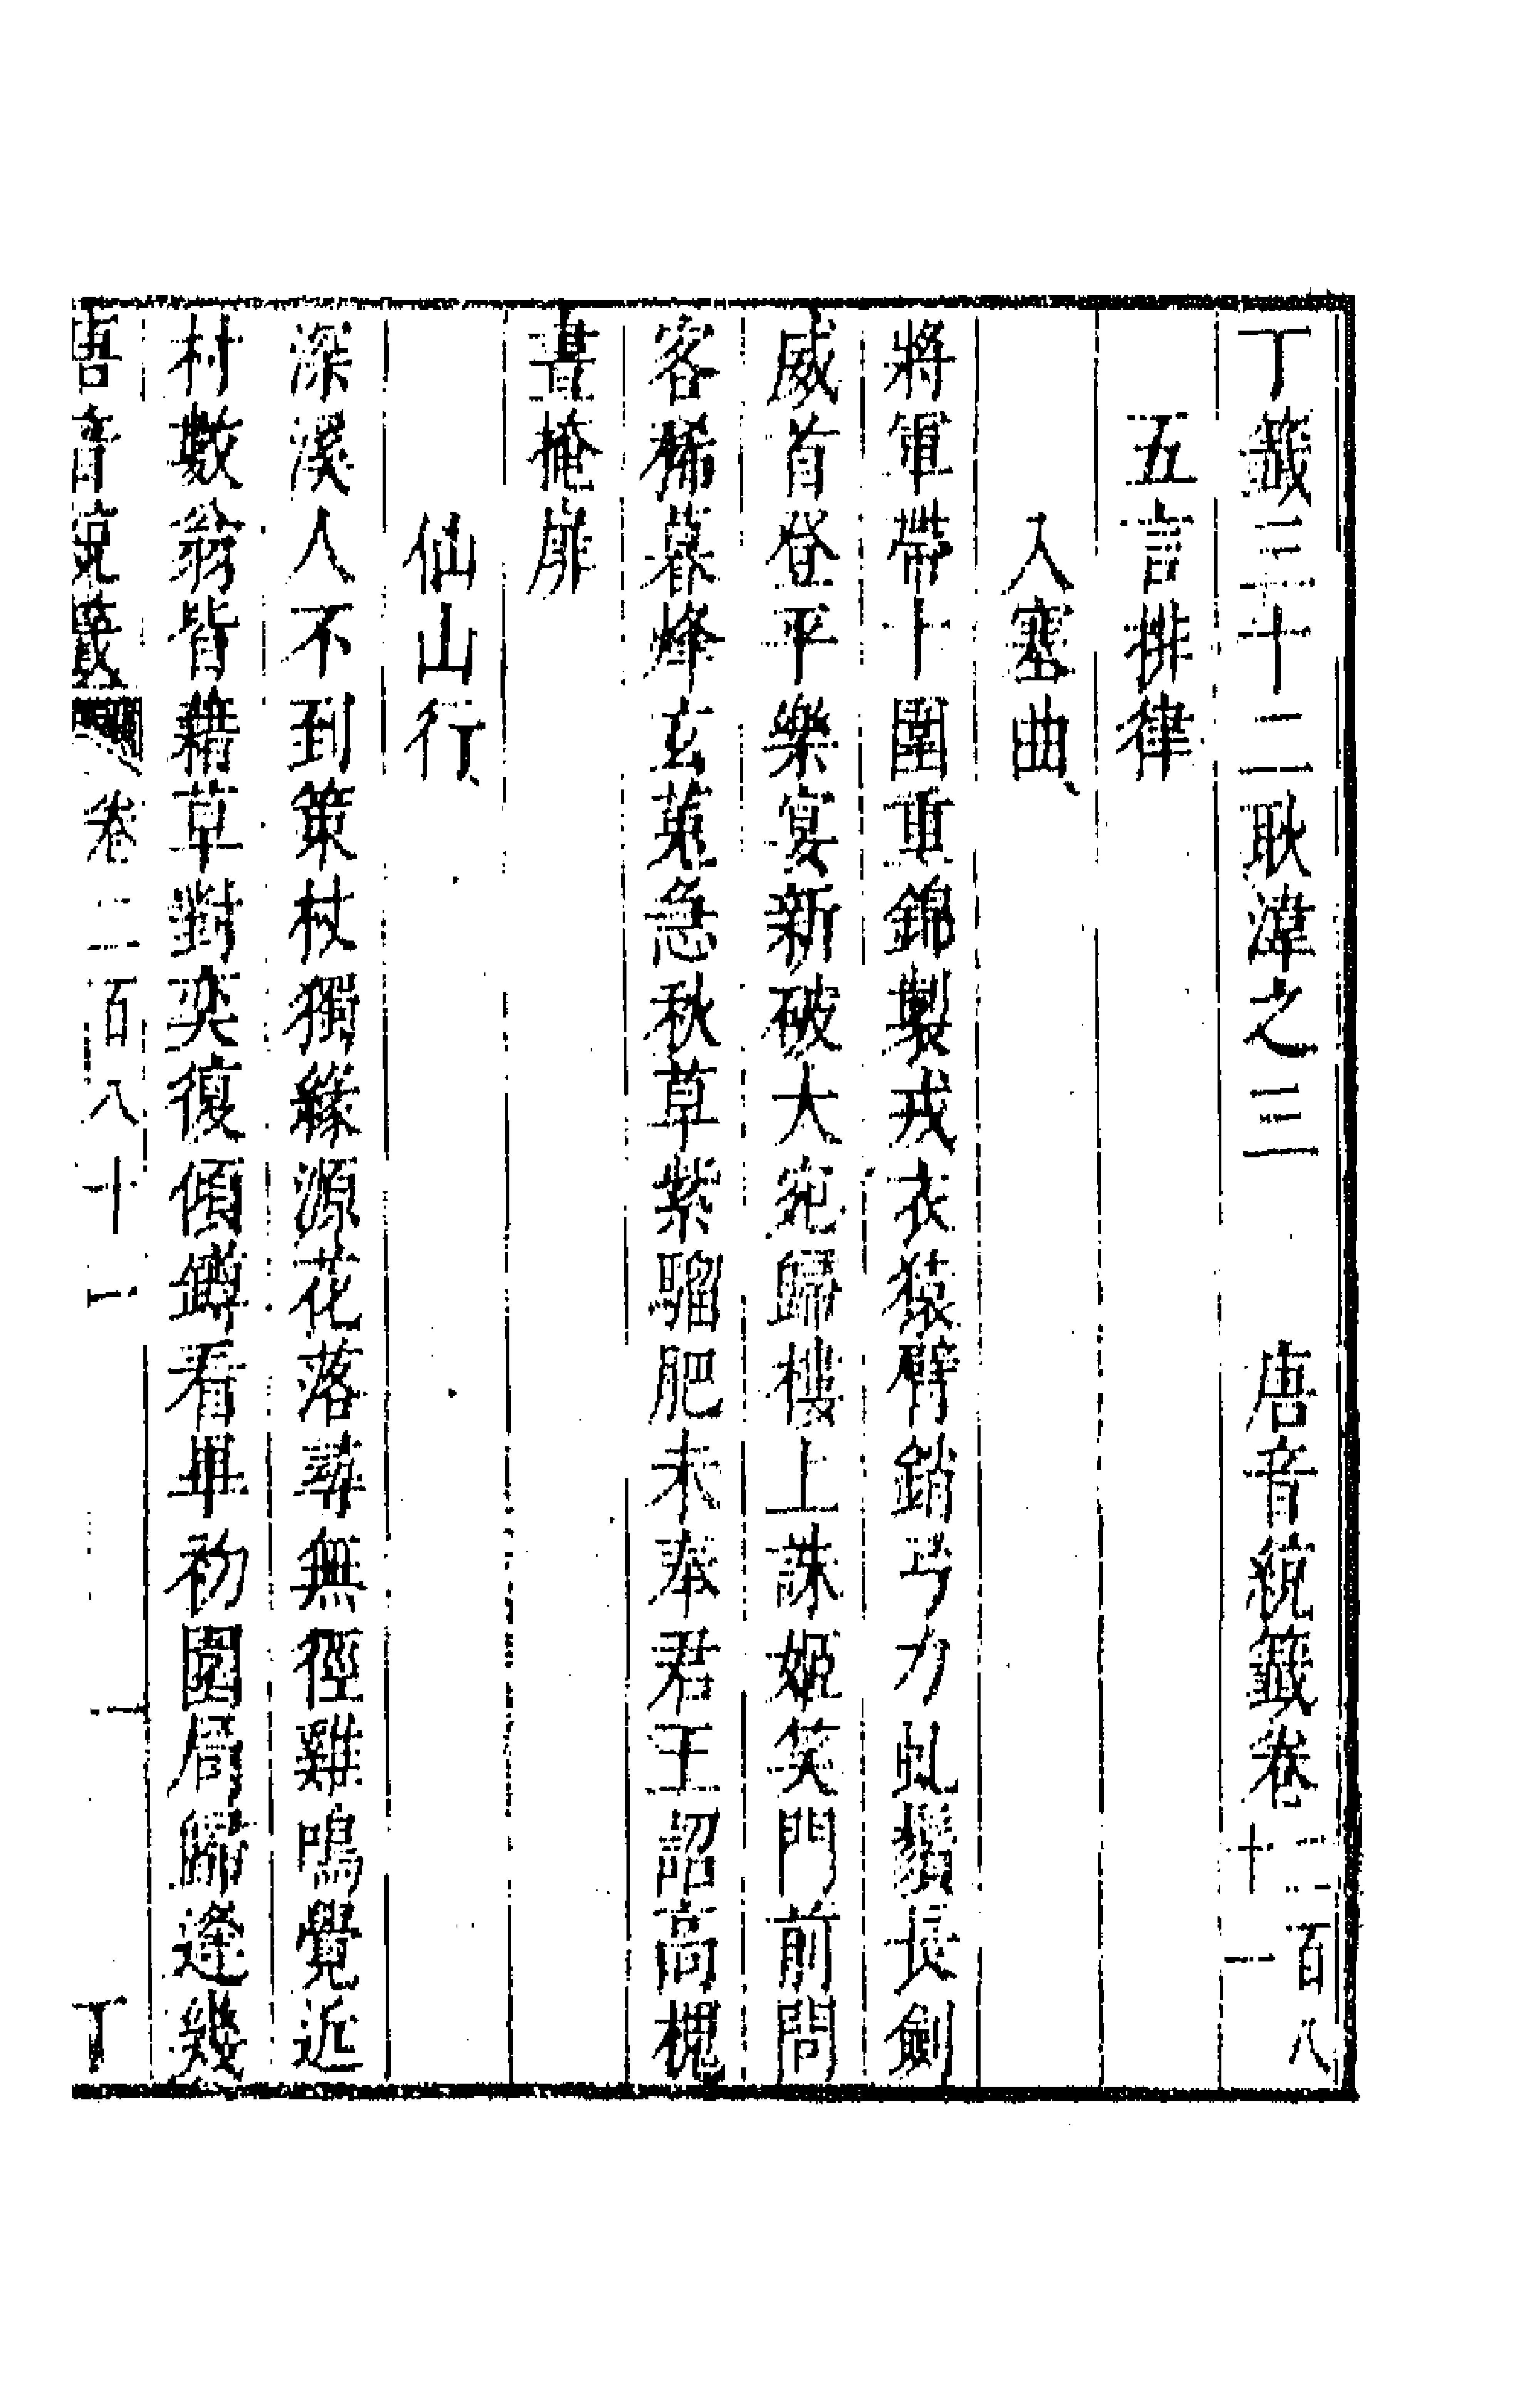 丁籤三十二耿湋之三　唐音統籤卷二百八十一
五言排律
入塞曲
將軍帶十圍重錦製戎衣猿臂銷弓力虬鬚長劍
威首登平樂宴新破大宛歸樓上誅姬笑門前問
客稀暮烽玄菟急秋草紫騮肥未奉君王詔高槐
晝掩扉
仙山行
深溪人不到策杖獨緣源花落尋無徑雞鳴覺近
村數翁皆藉草對奕復傾罇看畢初圍局歸逢幾
唐音統籤 卷二百八十一 一 丁